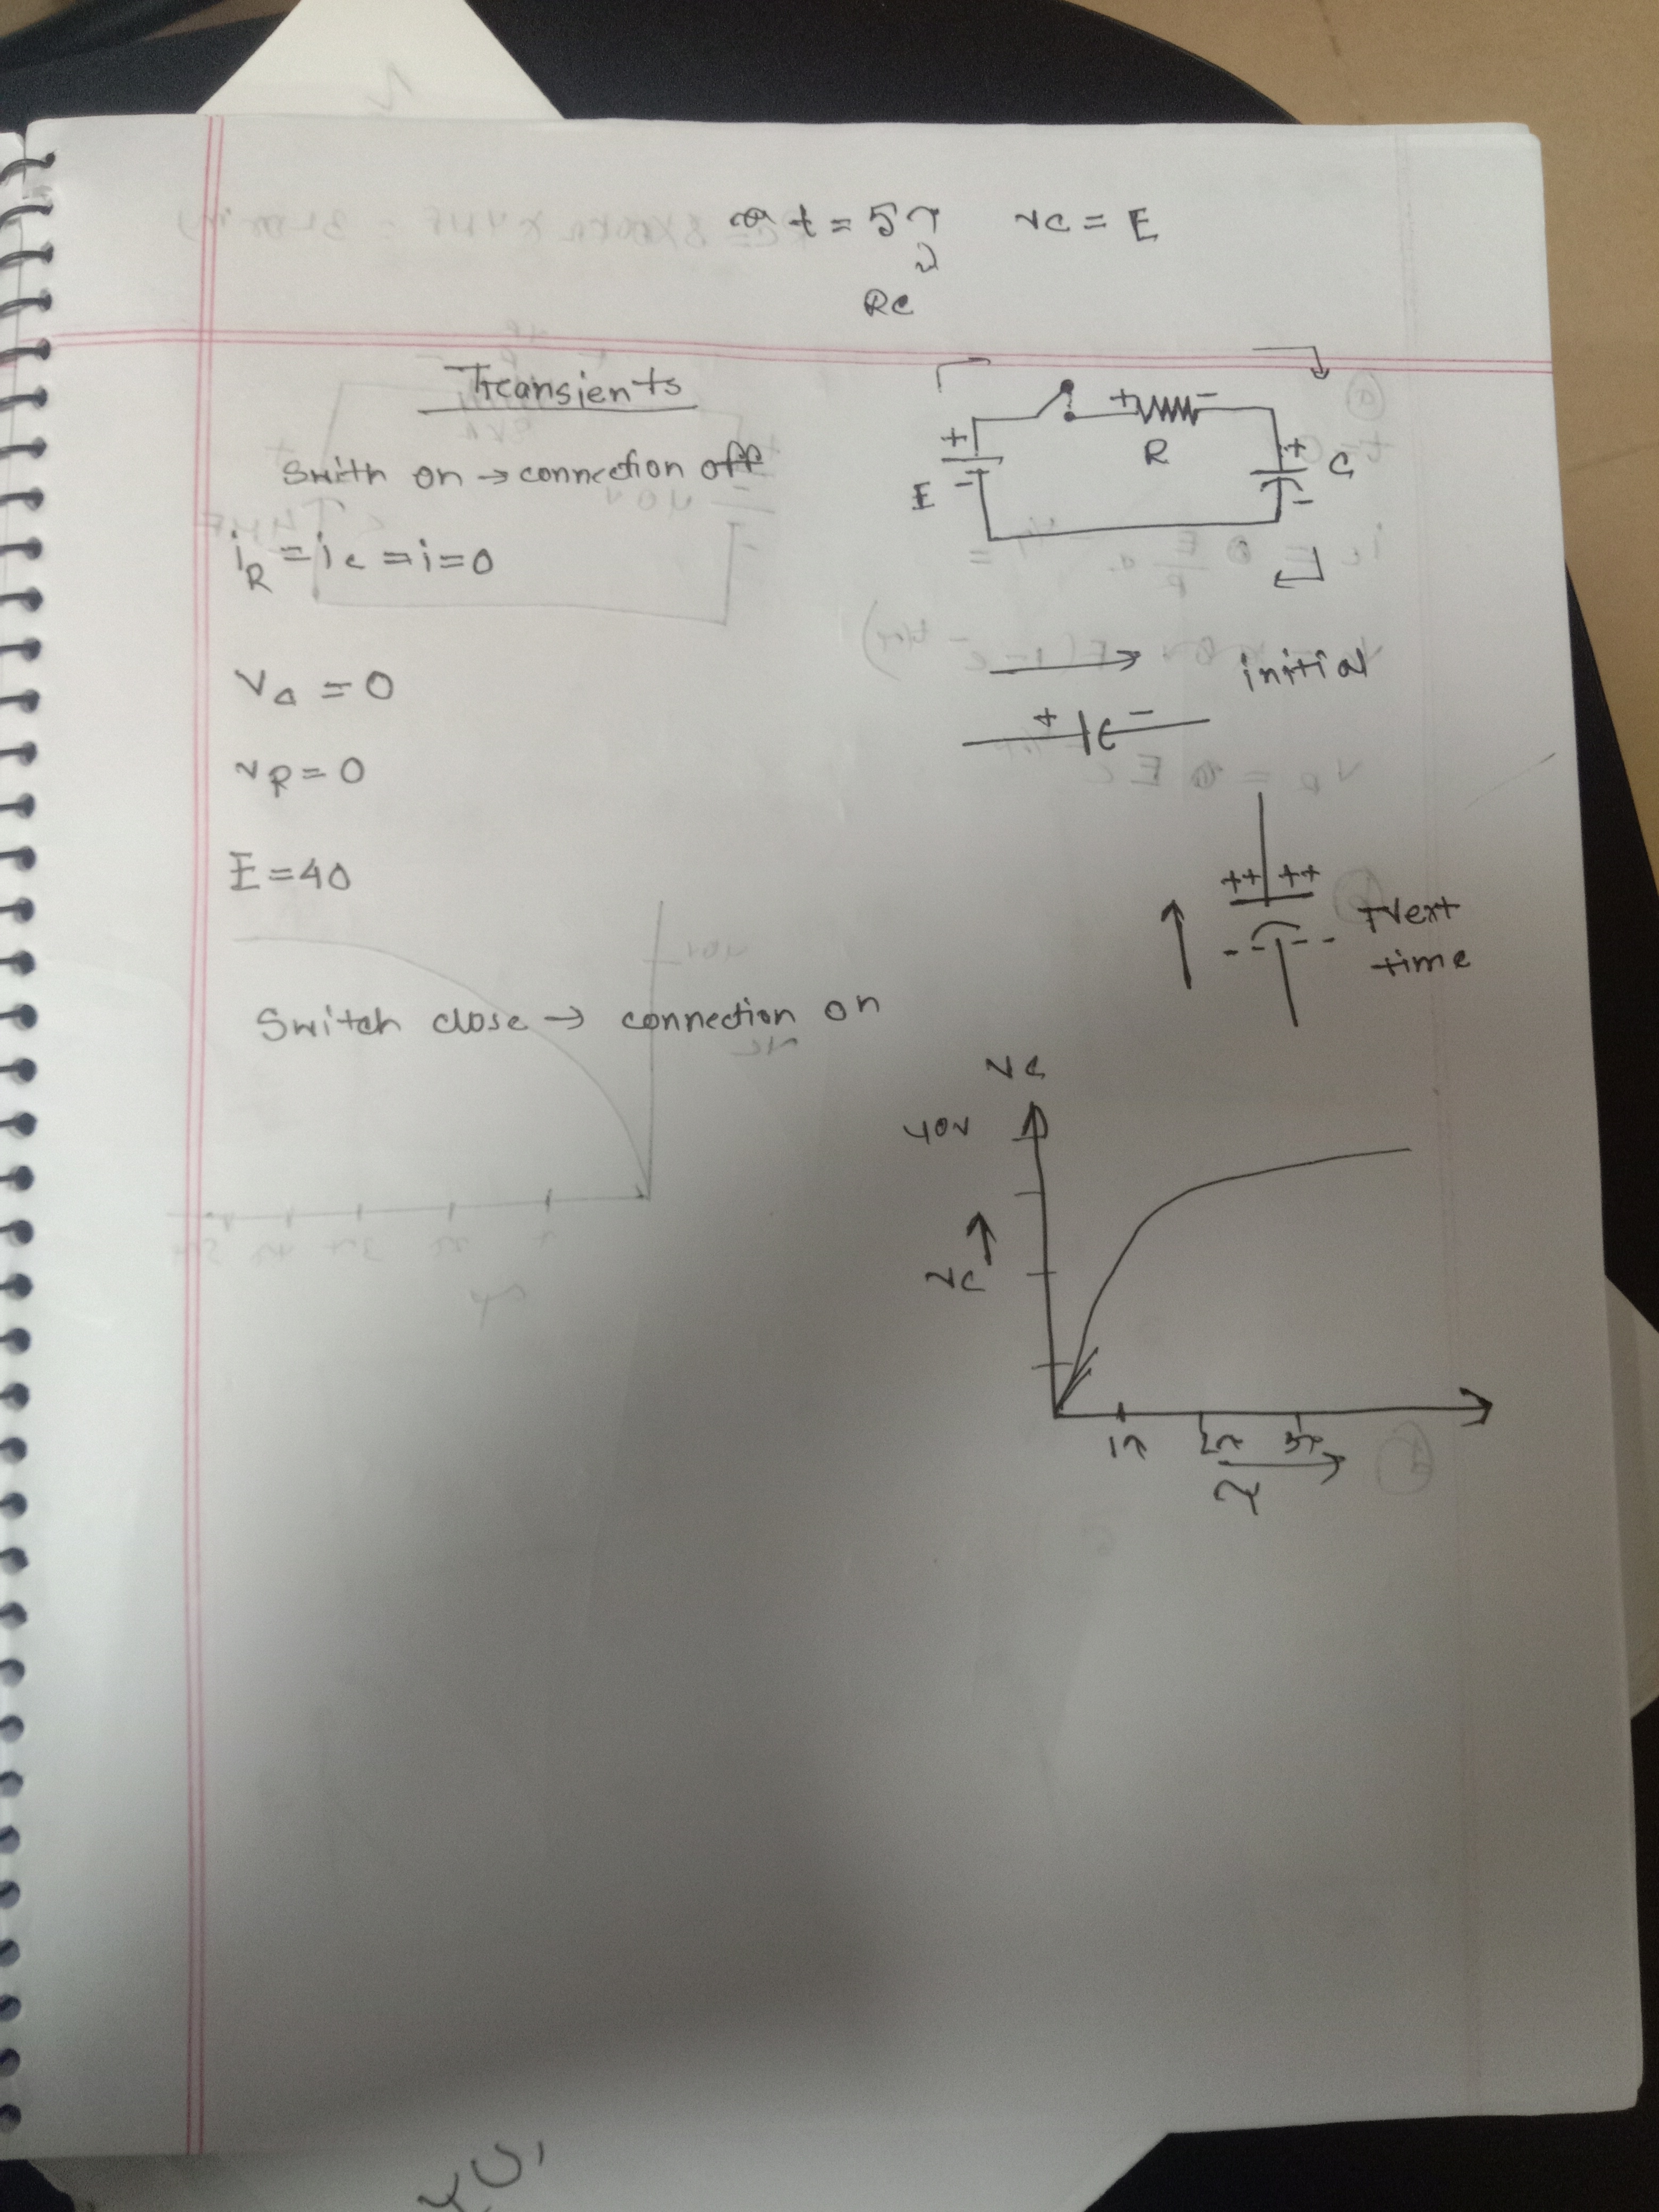 t = 5τ vc = E
RC
Transients
Swith on → connection off
iR = ic = i = 0
Vc = 0
vR = 0
E = 40
Switch close → connection on
+ -
R
+
E -
+ C
-
initial
+ -
++ ++
- - - -
Next
time
vc
40v
vc
1τ 2τ 3τ
τ